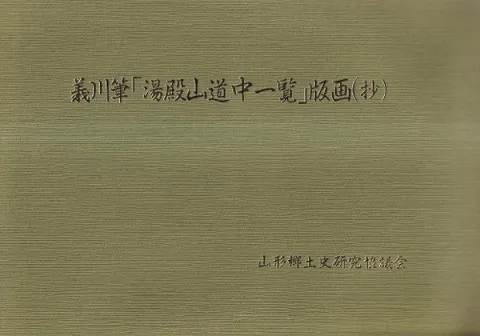 義川筆「湯殿山道中一覧」版画(抄)
山形郷土史研究協議会